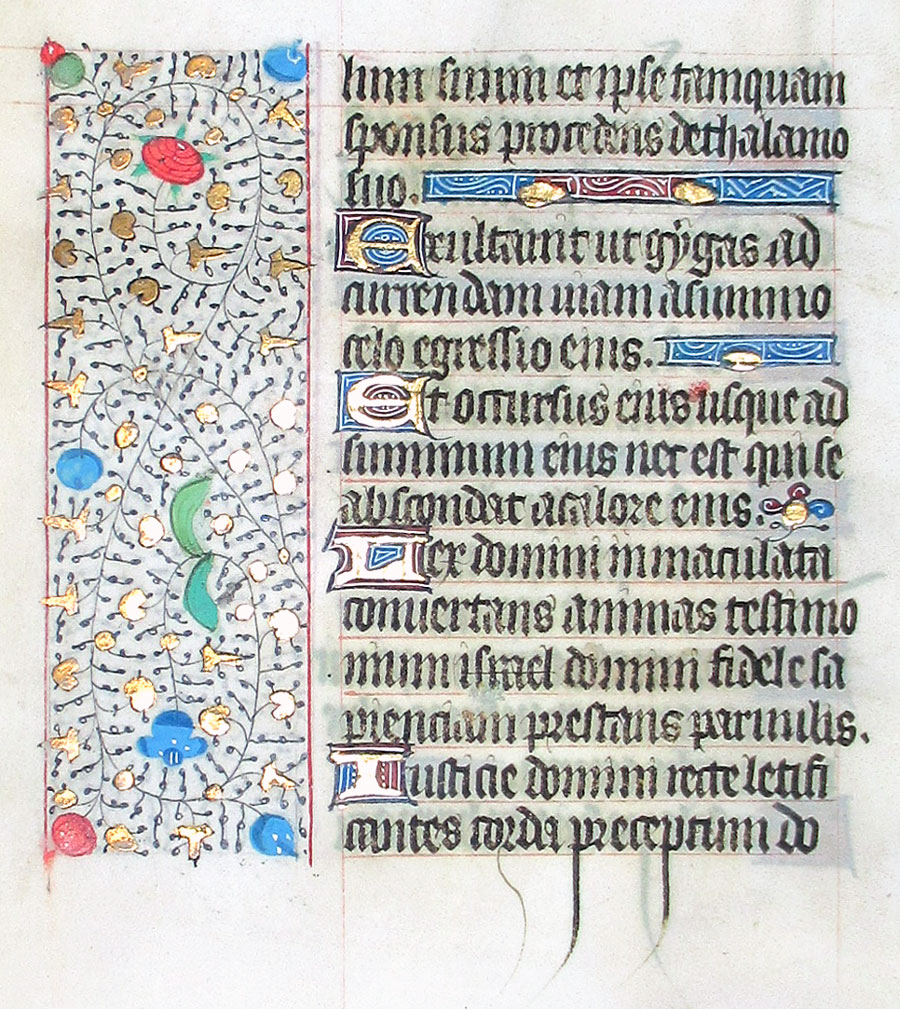 lium suum et ipse tamquam
sponsus procedens de thalamo
suo.
Exultavit ut gygas ad
currendam viam a summo
celo egressio eius.
Et occursus eius usque ad
summum eius nec est qui se
abscondat a calore eius.
Lex domini immaculata
convertans animas testimo
nium israel domini fidele sa
pienciam prestans parvulis.
Iusticie domini recte letifi
cantes corda preceptum do